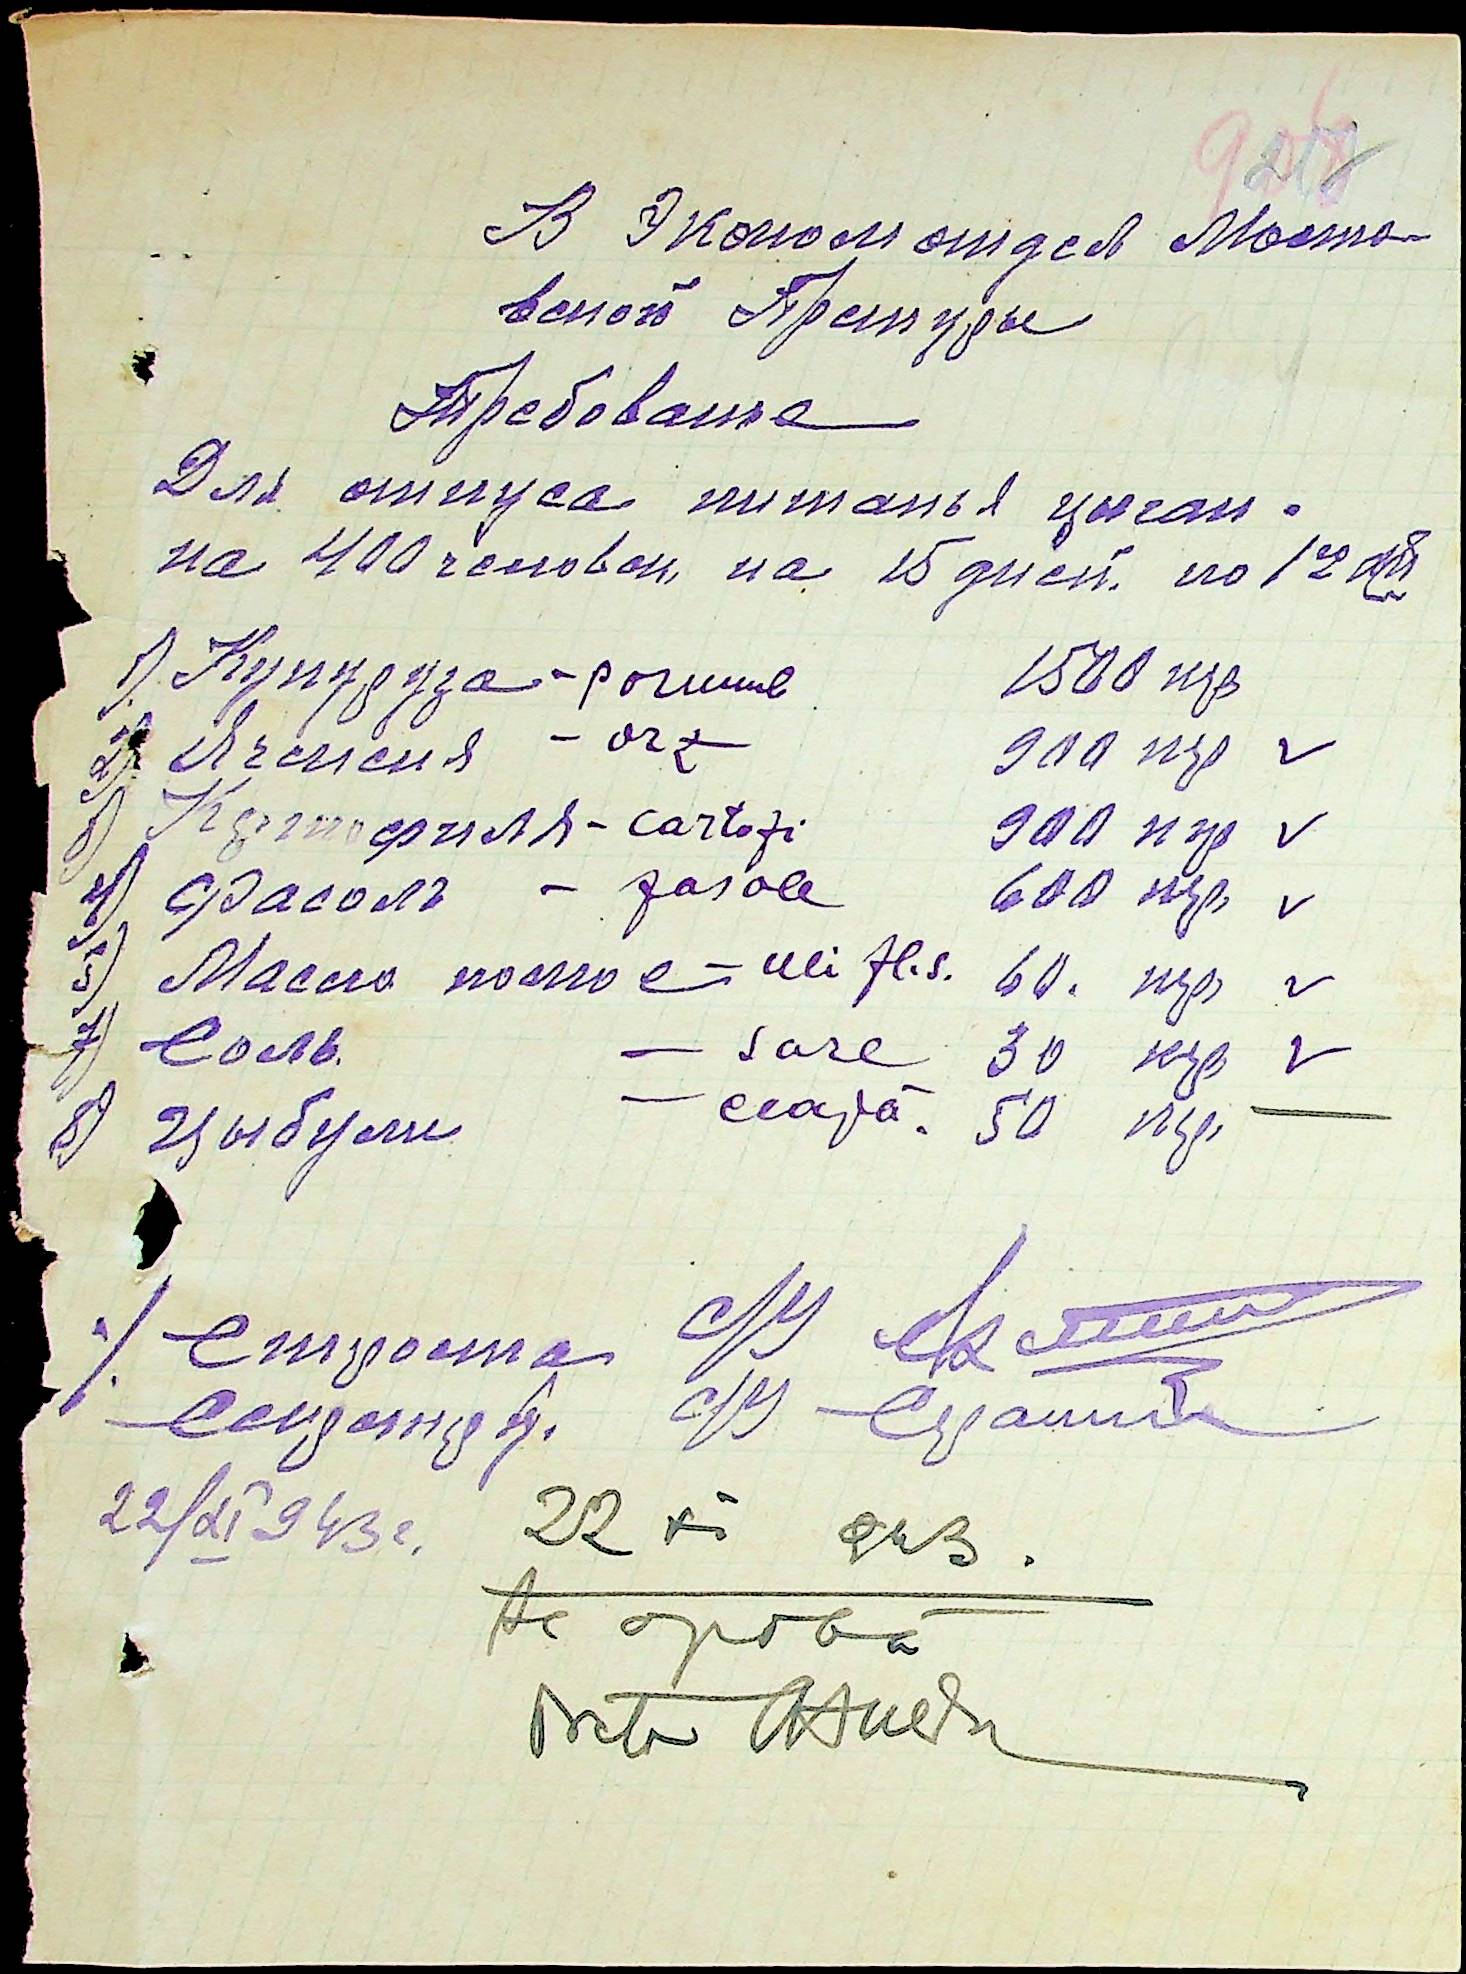 218
В Экономотдел Мосто-
вской Претуры
Требование
Для отпуса питанья цыган.
на 400 человек на 15 дней. по 1го
1) Кукуруза - porumb 1500 кгр
2) Ячменя - orz 900 кгр ✓
3) Картофиля - cartofi 900 кгр ✓
4) Фасоль - fasole 600 кгр. ✓
5) Масло посное - ulei fl.s. 60. кгр ✓
7) Соль. - sare 30 кгр ✓
8) Цыбули - ceapă. 50 кгр. —
Староста С/У
Секретарь. С/У
22/XI 943 г. 22 XI 943.
Se aprobă